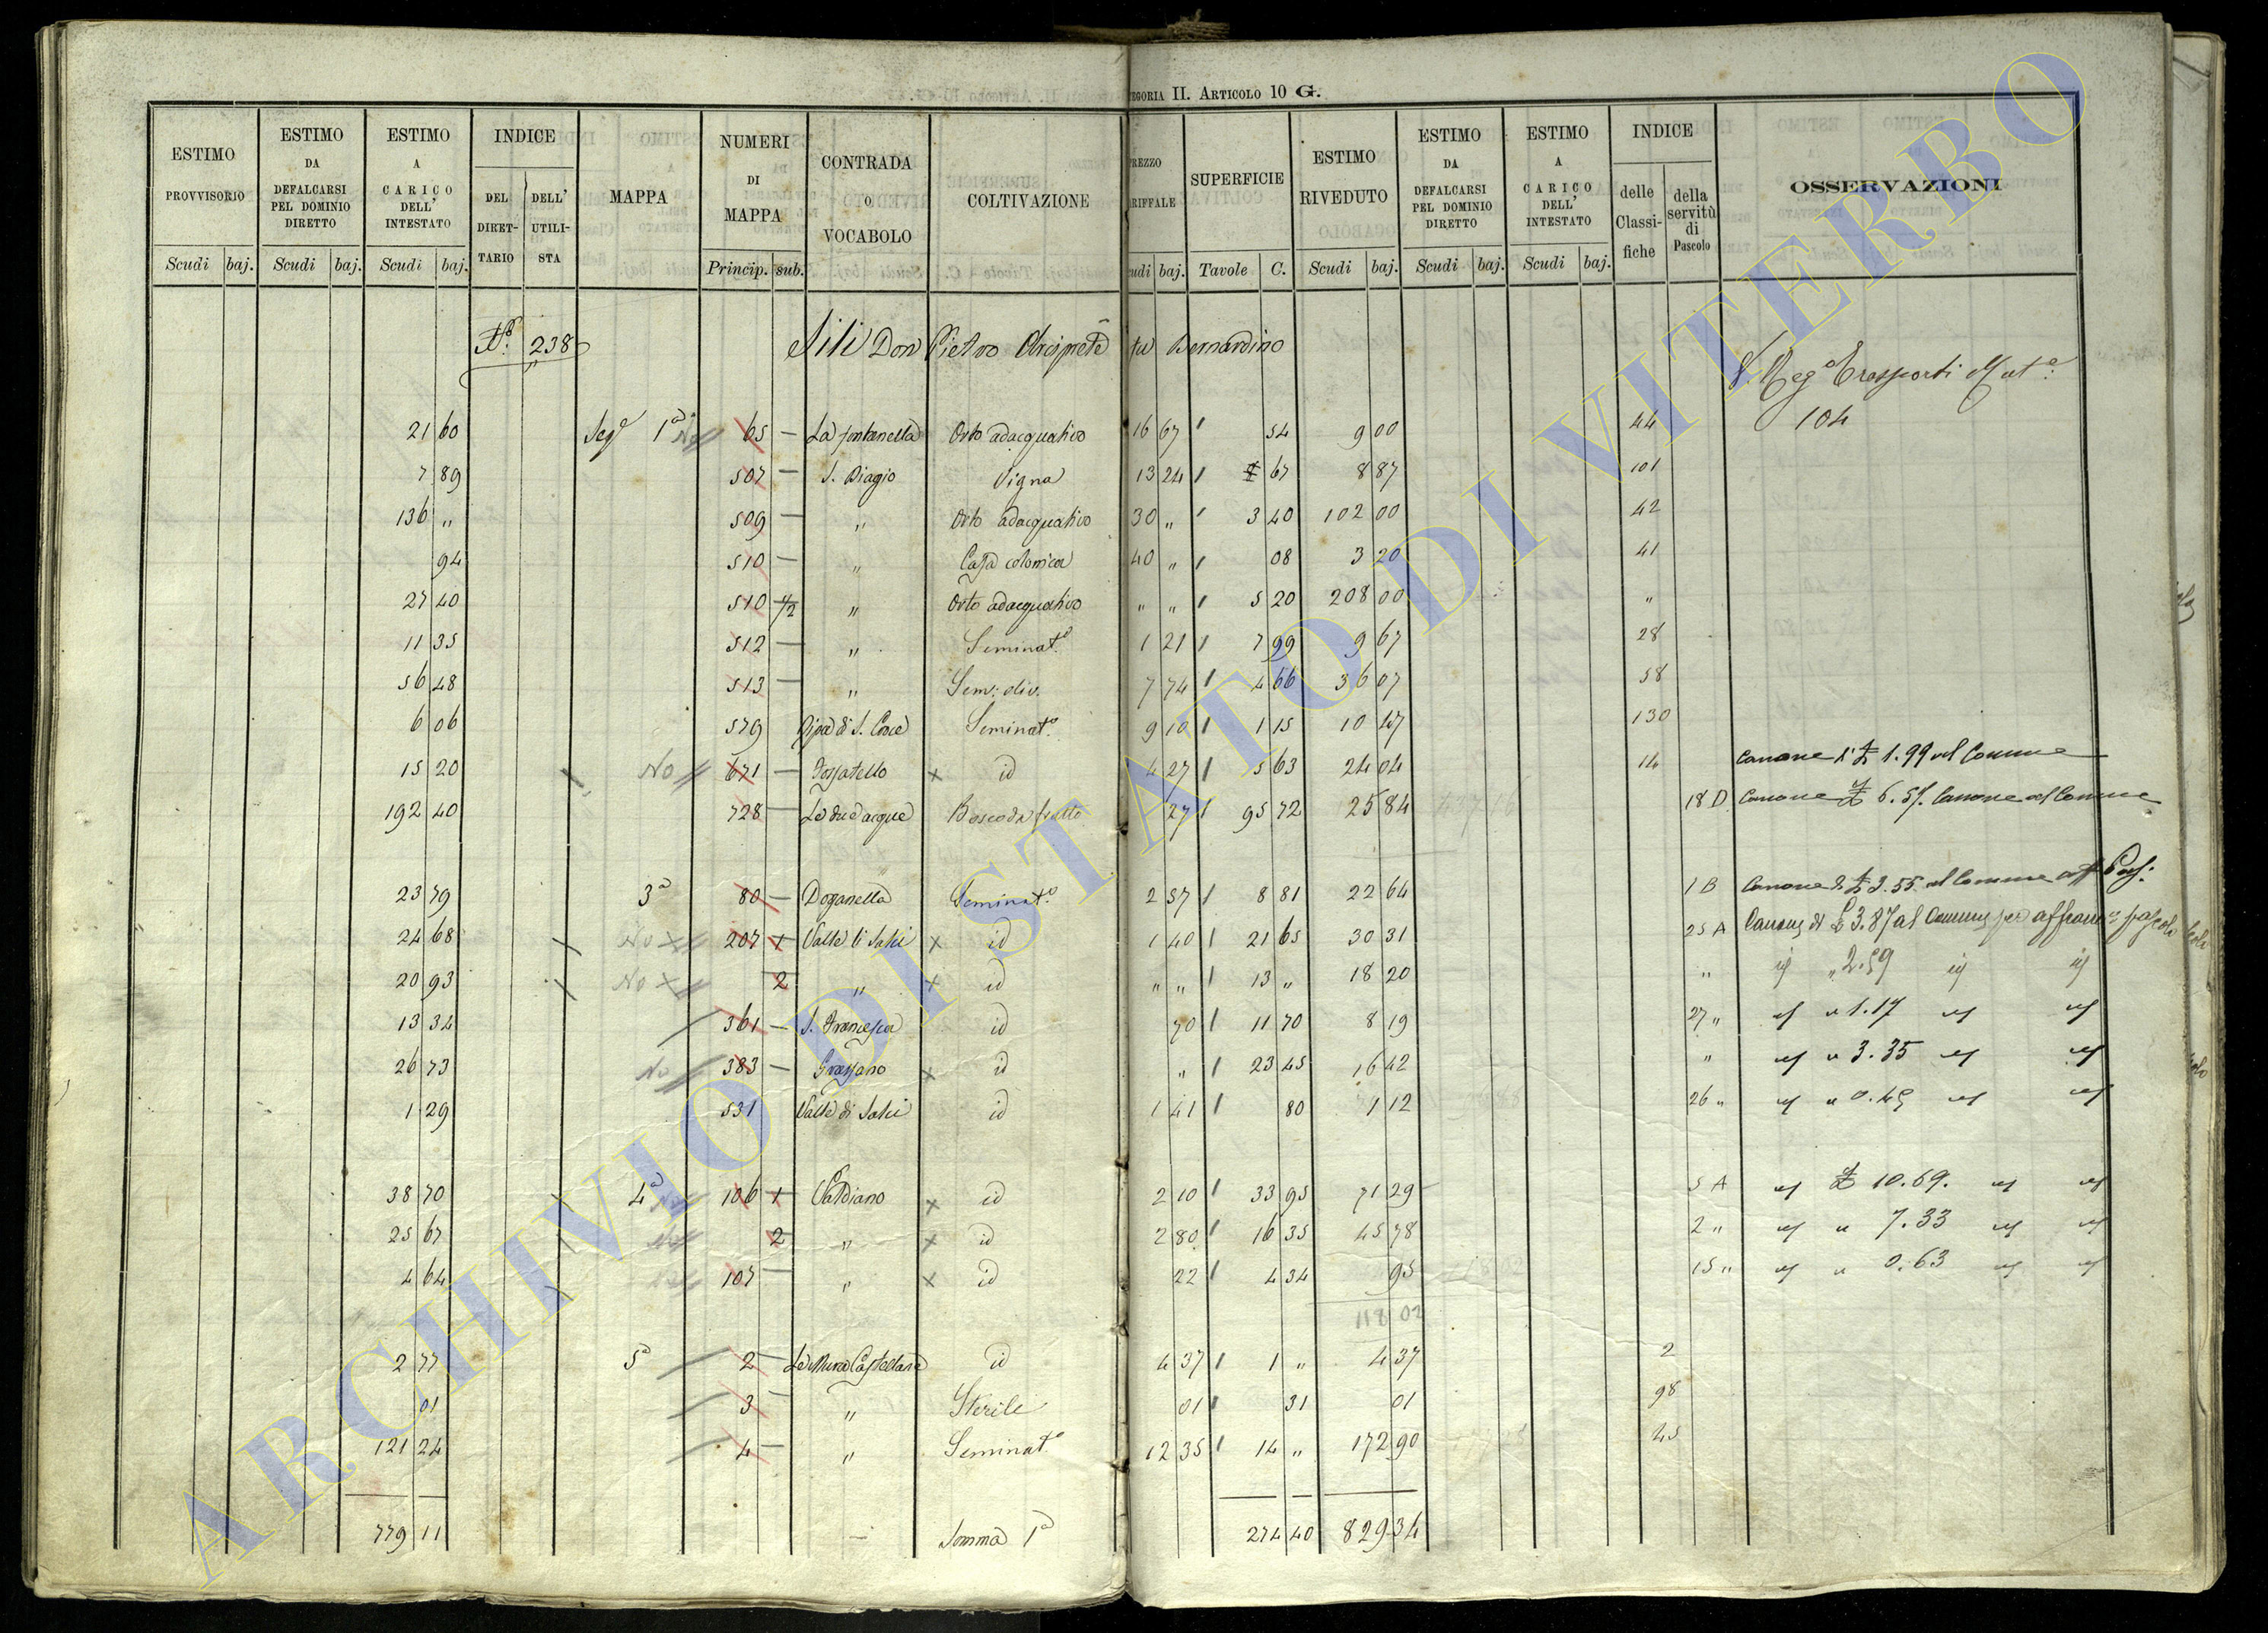 CATEGORIA II. ARTICOLO 10 G.
ESTIMO PROVVISORIO Scudi baj. ESTIMO DA DEFALCARSI PEL DOMINIO DIRETTO Scudi baj. ESTIMO A CARICO DELL' INTESTATO Scudi baj. INDICE DEL DIRETTARIO DELL' UTILISTA MAPPA NUMERI DI MAPPA Princip. sub. CONTRADA O VOCABOLO COLTIVAZIONE PREZZO TARIFFALE Scudi baj. SUPERFICIE Tavole C. ESTIMO RIVEDUTO Scudi baj. ESTIMO DA DEFALCARSI PEL DOMINIO DIRETTO Scudi baj. ESTIMO A CARICO DELL' INTESTATO Scudi baj. INDICE delle Classifiche della servitù di Pascolo OSSERVAZIONI
N.° 238 Sili Don Pietro Arciprete fu Bernardino
V. Reg° Trasporti Mut°:
21 60 Sez° 1a No 65 — La fontanella Orto adacquativo 16 67 54 9 00 44 104
7 89 507 — S. Biagio Vigna 13 24 67 8 87 101
136 „ 509 — „ Orto adacquativo 30 „ 3 40 102 00 42
94 510 — „ Casa colonica 40 „ 08 3 20 41
27 40 510 1/2 „ Orto adacquativo „ „ 5 20 208 00 „
11 35 512 — „ Seminat° 1 21 7 99 9 67 28
56 48 513 — „ Sem: oliv. 7 74 4 66 36 07 58
6 06 579 Ripa di S. Croce Seminat° 9 10 1 15 10 47 130
15 20 No 671 — Fossatello x id 4 27 5 63 24 04 14 Canone di £ 1.99 al Comune
192 40 728 — Le due acque Bosco da frutto 27 95 72 25 84 18 D Canone £ 6.51. Canone al Comune
23 79 3a 80 — Doganella Seminat° 2 57 8 81 22 64 1 B Canone di £ 3.55 al Comune aff Pasc:
24 68 No x 207 1 Valle di Salci x id 1 40 21 65 30 31 25 A Canone di £ 3.87 al Comune per affranc° pascolo
20 93 No x 2 „ x id „ „ 13 „ 18 20 „ id „ 2.59 id id
13 34 361 — S. Francesca id 70 11 70 8 19 27 „ id „ 1.17 id id
26 73 No 383 — Grassano x id „ 23 45 16 42 „ id „ 3.35 id id
1 29 531 Valle di Salci id 1 41 80 1 12 26 „ id „ 0.45 id id
38 70 4a No 106 1 Valdiano x id 2 10 33 95 71 29 5 A id £ 10.69. id id
25 67 No 2 „ x id 2 80 16 35 45 78 2 „ id „ 7.33 id id
4 64 No 107 — „ x id 22 4 34 95 15 „ id „ 0.63 id id
118 02
2 77 5a 2 — Le Mura Castellane id 4 37 1 „ 4 37 2
01 3 — „ Sterile 01 31 01 98
121 24 4 — „ Seminat° 12 35 14 „ 172 90 45
779 11 Somma 1a 274 40 829 34
ARCHIVIO DI STATO DI VITERBO